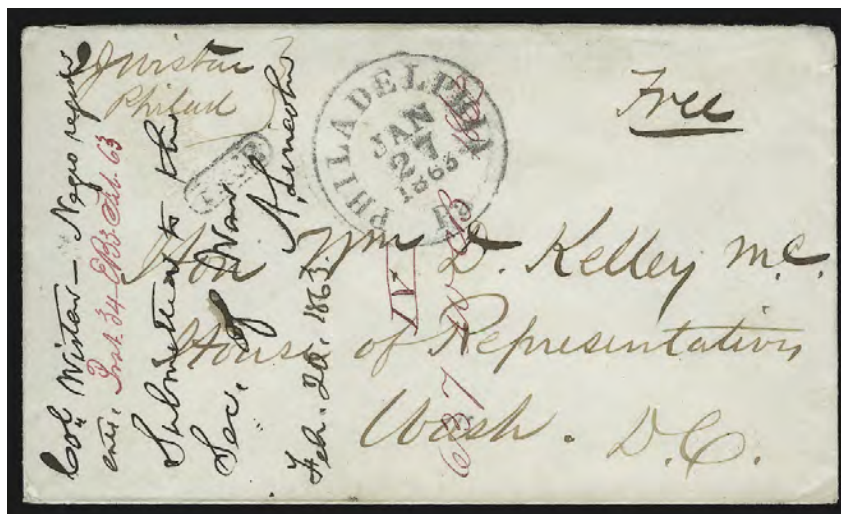 J Wistar
Philad
PHILADELPHIA Pa
JAN
27
1863
FREE
Free
Hon Wm D. Kelley M.C.
House of Representatives
Wash. D.C.
Col. Wistar — Negro regim
ents.
Submitted to the
Sec. of War
A. Lincoln
Feb. 20. 1863.
IV
637